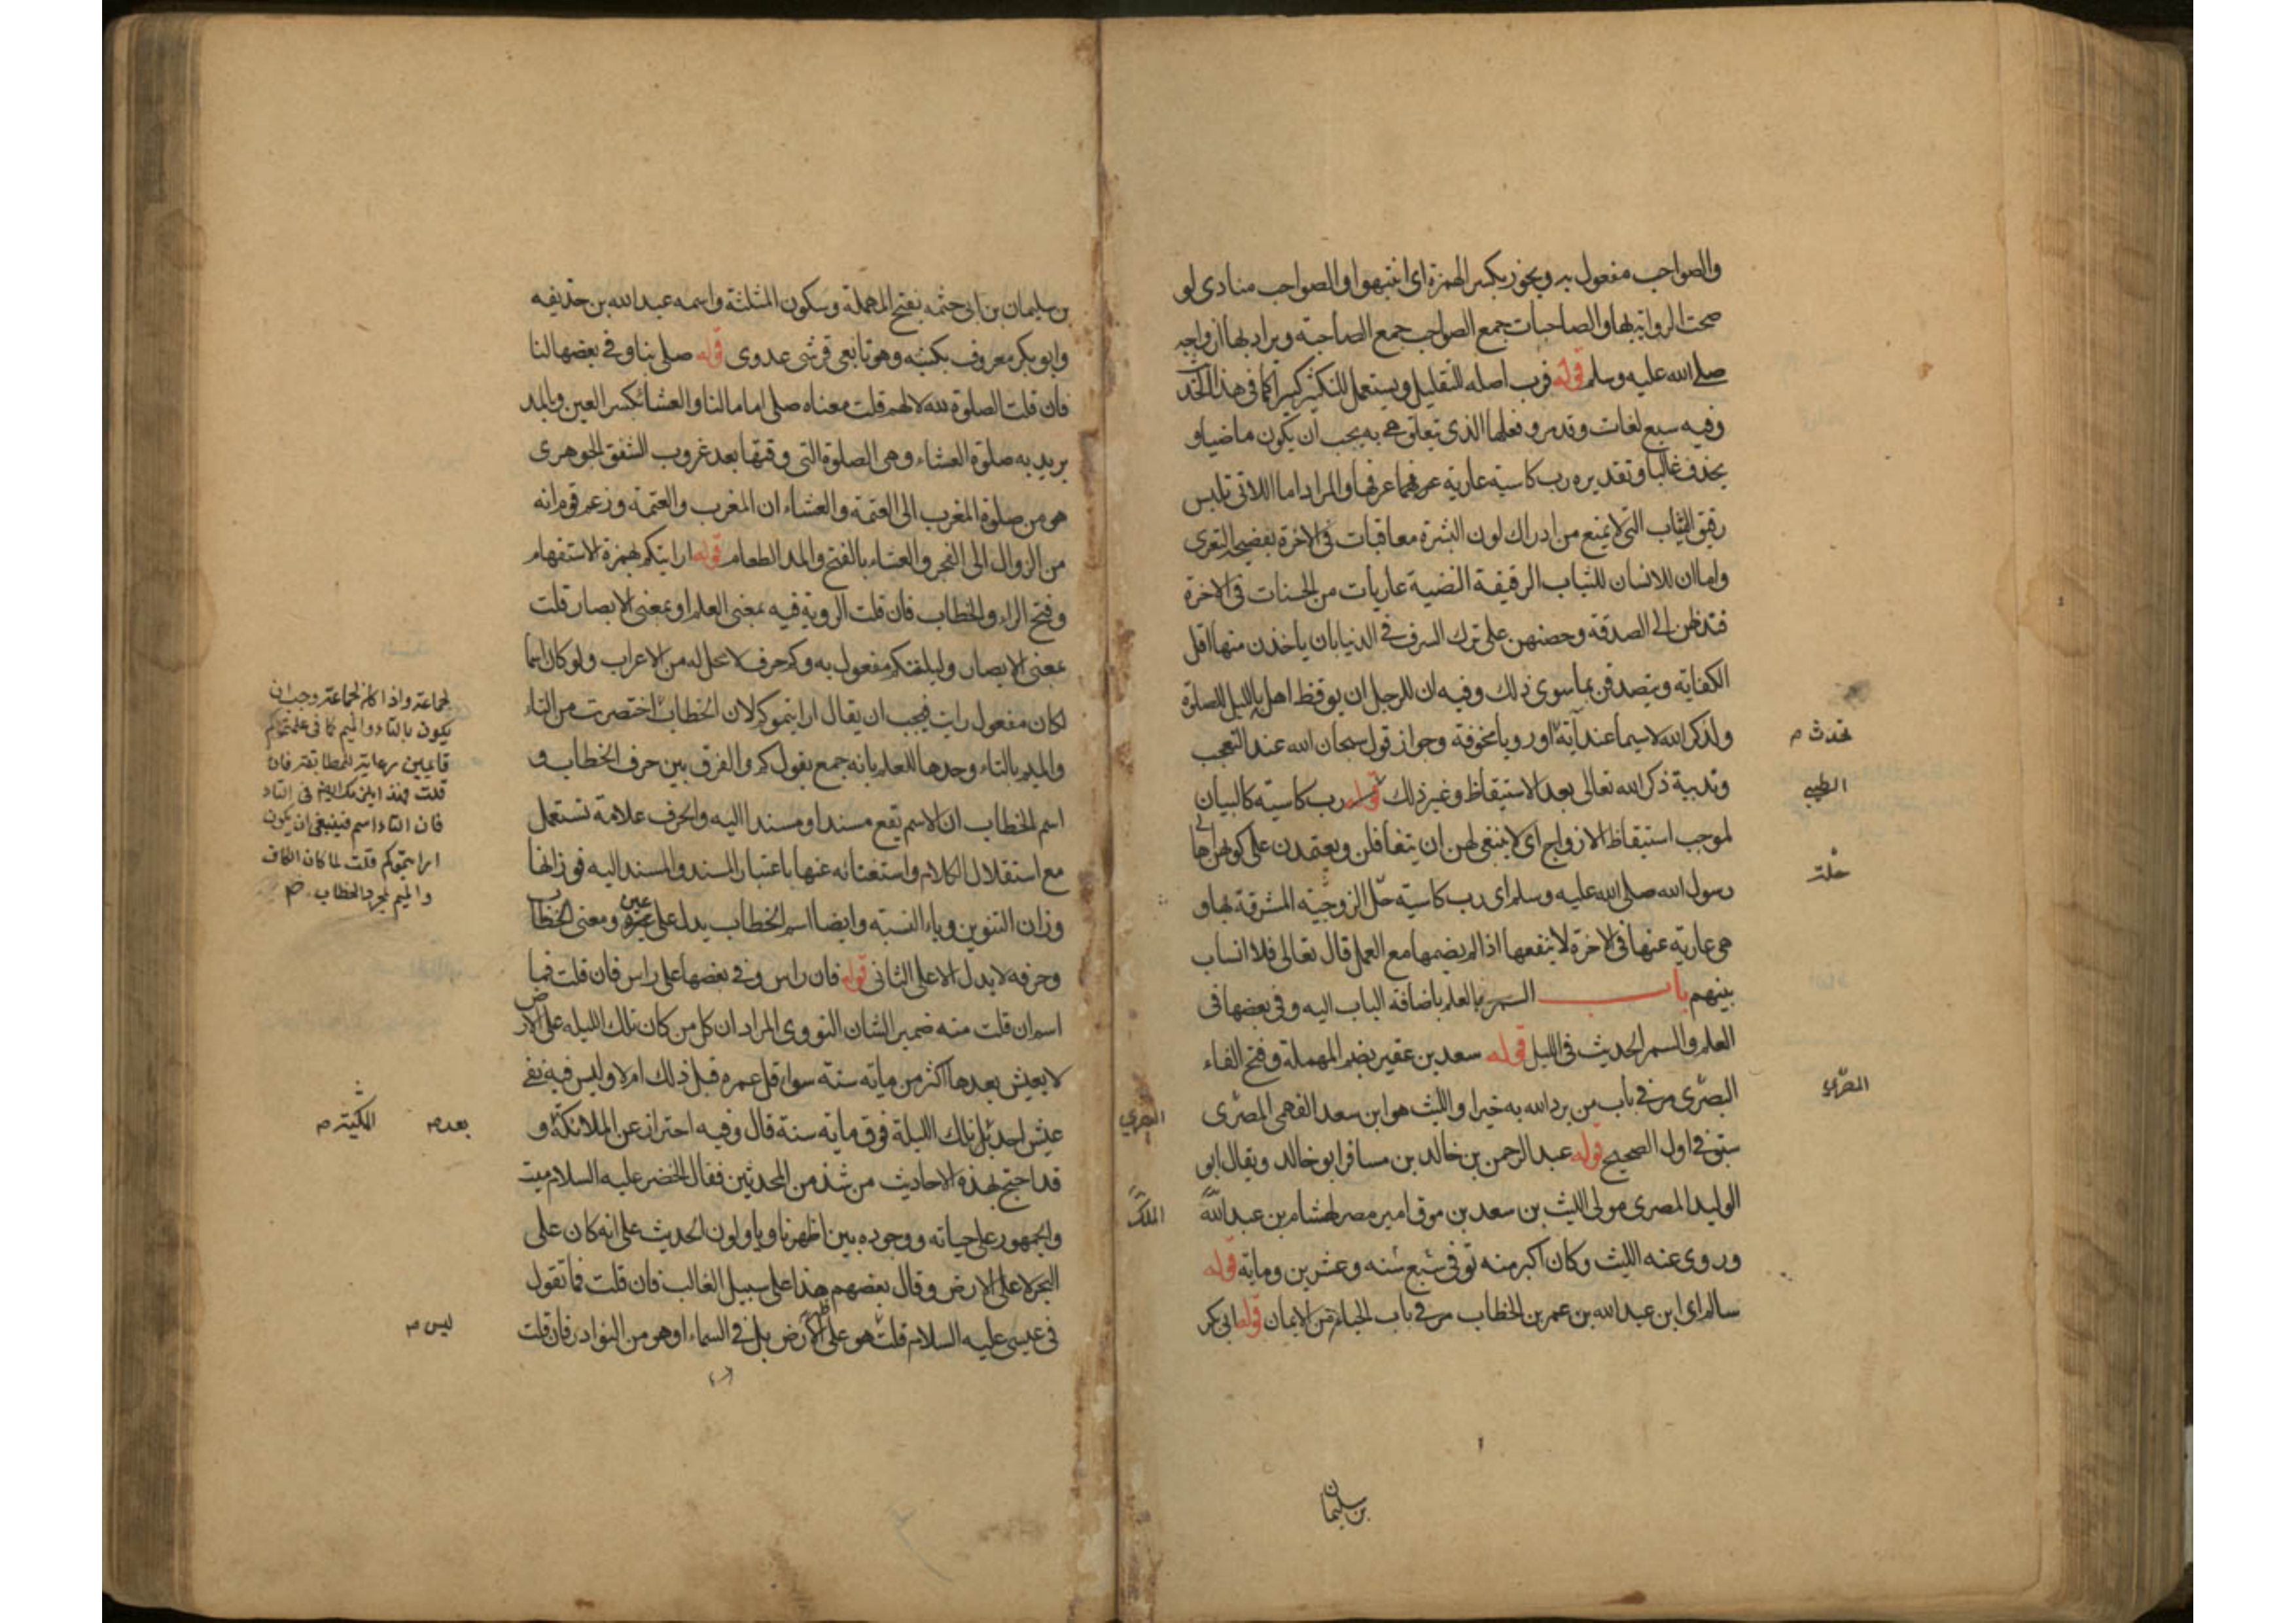 والصواحب مفعول به ويجوز بكسر الهمزة اى انتبهوا والصواحب منادى لو
صحت الرواية بها والصاحبات جمع الصواحب جمع الصاحبة ويراد بها ازواجه
صلى الله عليه وسلم قوله فرب اصله للتقليل ويستعمل للتكثير كثيرا كما فى هذا الحديث
وفيه سبع لغات وقد مر وفعلها الذى تعلق هى به يجب ان يكون ماضيا و
يحذف غالبا وتقديره رب كاسية عارية عرفها والمراد اما اللاتى تلبس
رقيق الثياب التى لا يمنع من ادراك لون البشرة معاقبات فى الاخرة بفضيحة التعرى
واما ان للانسان للثياب الرقيقة النضية عاريات من الحسنات فى الاخرة
فندبهن الى الصدقة وحضهن على ترك السرف فى الدنيا بان يأخذن منها اقل
الكفاية ويتصدقن بما سوى ذلك وفيه ان للرجل ان يوقظ اهله بالليل للصلوة
ولذكر الله لا سيما عند آية او رويا مخوفة وجواز قول سبحان الله عند التعجب
تحدث م
وندبية ذكر الله تعالى بعد الاستيقاظ وغير ذلك قوله رب كاسية كالبيان
الطيبى
لموجب استيقاظ الازواج اى لا ينبغى لهن ان يتغافلن ويعتمدن على كونهن اهالى
رسول الله صلى الله عليه وسلم اى رب كاسية حلى الزوجية المشرقة بها و
حلة
هى عارية عنها فى الاخرة لا ينفعها اذا لم يضمها مع العمل قال تعالى فلا انساب
بينهم باب السمر بالعلم باضافة الباب اليه وفى بعضها فى
العلم والسمر الحديث فى الليل قوله سعد بن عفير بضم المهملة وفتح الفاء
البصرى مر فى باب من يرد الله به خيرا والليث هو ابن سعد الفهمى المصرى
المصرى
البصرى
سبق فى اول الصحيح قوله عبد الرحمن بن خالد بن مسافر ابو خالد ويقال ابو
الوليد المصرى مولى الليث بن سعد بن موق امير مصر لهشام بن عبد الله
الملك
وروى عنه الليث وكان اكبر منه توفى سبع سنه وعشرين وماية قوله
سالم اى ابن عبد الله بن عمر بن الخطاب مر فى باب الحياء من الايمان قوله ابى بكر
بن سليمان
بن سليمان بن ابى حثمه بفتح المهملة وسكون المثلثة واسمه عبد الله بن حذيفه
وابو بكر معروف بكنيته وهو تابعى قرشى عدوى قوله صلى بنا وفى بعضها لنا
فان قلت الصلوة لله لا لهم قلت معناه صلى اماما لنا والعشا بكسر العين وبالمد
يريد به صلوة العشاء وهى الصلوة التى وقتها بعد غروب الشفق الجوهرى
هو من صلوة المغرب الى العتمة والعشاء ان المغرب والعتمة وزعم قوم انه
من الزوال الى الفجر والعشاء بالفتح والمد الطعام قوله ارايتكم بهمزة الاستفهام
وفتح الراء والخطاب فان قلت الروية فيه بمعنى العلم او بمعنى الابصار قلت
بمعنى الابصار وليلتكم مفعول به وكم حرف لا محل له من الاعراب ولو كان اسما
لكان مفعول رايت فيجب ان يقال ارايتموكم لان الخطاب اختصرت من التاء
والميم بالتاء وحدها للعلم بانه جمع بقول كم والفرق بين حرف الخطاب و
اسم الخطاب ان الاسم يقع مسندا ومسندا اليه والحرف علامة تستعمل
مع استقلال الكلام واستغنائه عنها باعتبار المسند والمسند اليه فوزانها
وزان التنوين وياء النسبة وايضا اسم الخطاب يدل على عين ومعنى الخطاب
وحرفه لا يدل الا على الثانى قوله فان راس وفى بعضها على راس فان قلت فما
اسم ان قلت منه ضمير الشان النووى المراد ان كل من كان تلك الليلة على الارض
لا يعيش بعدها اكثر من ماية سنة سواء قل عمره قبل ذلك ام لا وليس فيه نفى
عيش احد بل تلك الليلة فوق ماية سنة قال وفيه احتراز عن الملائكة و
قد احتج بهذه الاحاديث من شذ من المحدثين فقال الخضر عليه السلام ميت
والجمهور على حياته ووجوده بين اظهرنا وياولون الحديث على انه كان على
البحر لا على الارض وقال بعضهم هذا على سبيل الغالب فان قلت فما تقول
فى عيسى عليه السلام قلت هو على ظهر الارض بل فى السماء او هو من النوادر فان قلت
لجماعة واذا كان لجماعة وجب ان
يكون بالتاء والميم كما فى علمتموكم
قايمين رعاية للمطابقة فان
قلت فهذا يلزمك ايضا فى التاء
فان التاء اسم فينبغى ان يكون
ارايتموكم قلت لما كان الكاف
والميم لمجرد الخطاب
بعد م
ليس م